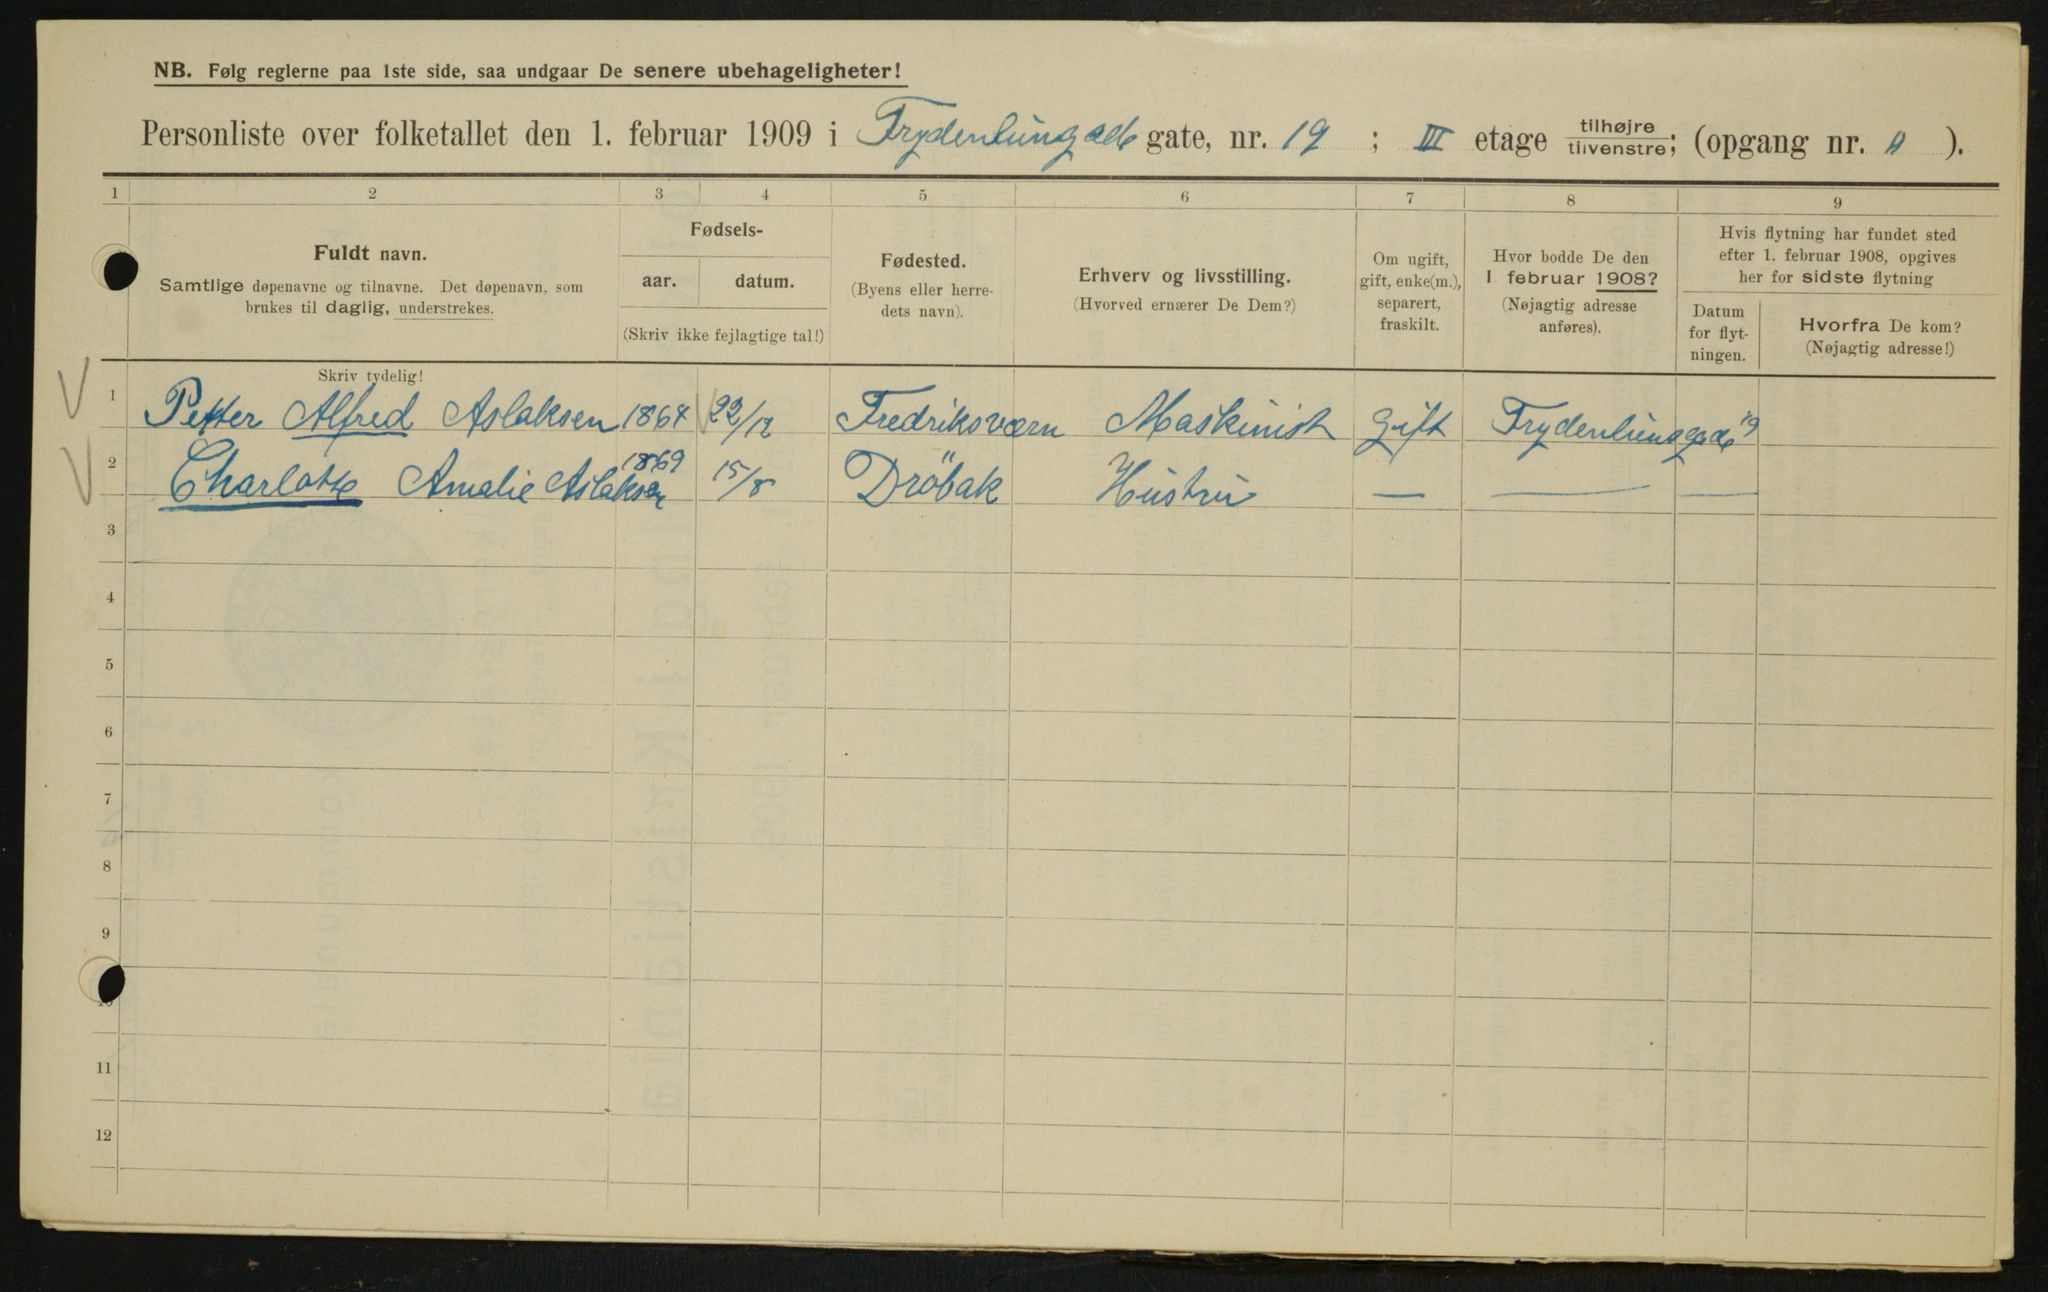 NB. Følg reglerne paa 1ste side, saa undgaar De senere ubehageligheter!
Personliste over folketallet den 1. februar 1909 i Frydenlungade gate, nr. 19 ; III etage tilhøjre tilvenstre; (opgang nr. A ).
1 2 3 4 5 6 7 8 9
Fuldt navn.
Samtlige døpenavne og tilnavne. Det døpenavn, som
brukes til daglig, understrekes.
Fødsels-
aar. datum.
(Skriv ikke fejlagtige tal!)
Fødested.
(Byens eller herre-
dets navn).
Erhverv og livsstilling.
(Hvorved ernærer De Dem?)
Om ugift,
gift, enke(m.),
separert,
fraskilt.
Hvor bodde De den
1 februar 1908?
(Nøjagtig adresse
anføres).
Hvis flytning har fundet sted
efter 1. februar 1908, opgives
her for sidste flytning
Datum
for flyt-
ningen.
Hvorfra De kom?
(Nøjagtig adresse!)
Skriv tydelig!
1 Petter Alfred Aslaksen 1864 22/12 Fredriksværn Maskinist Gift Frydenlungade 19
2 Charlotte Amalie Aslaksen 1869 15/8 Dröbak Hustru — — —
3
4
5
6
7
8
9
10
11
12